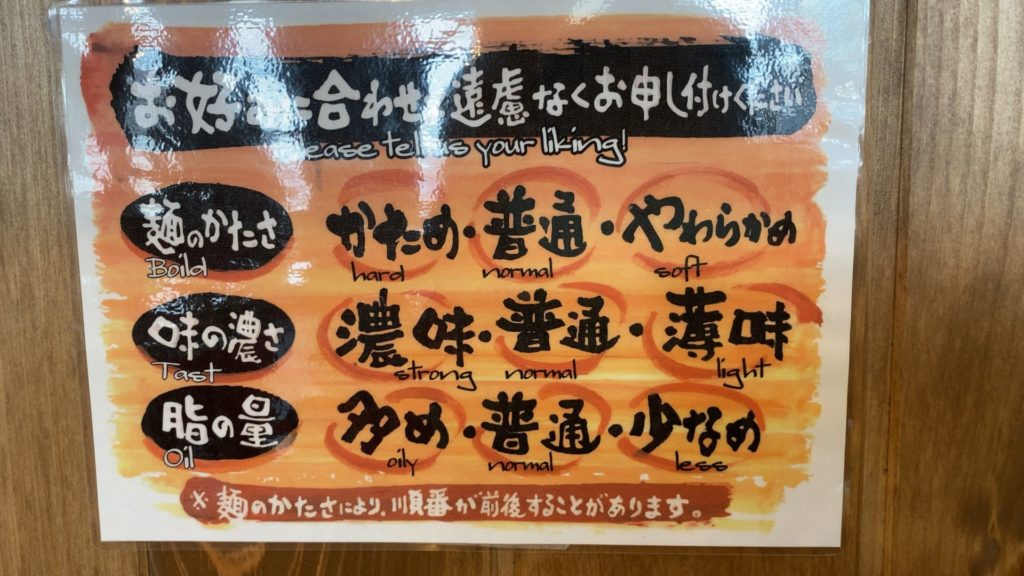 お好み 合わせ 遠慮なくお申し付けください
tell us your liking!
麺のかたさ かため・普通・やわらかめ
Boild hard normal soft
味の濃さ 濃味・普通・薄味
Tast strong normal light
脂の量 多め・普通・少なめ
Oil oily normal less
※麺のかたさにより、順番が前後することがあります。